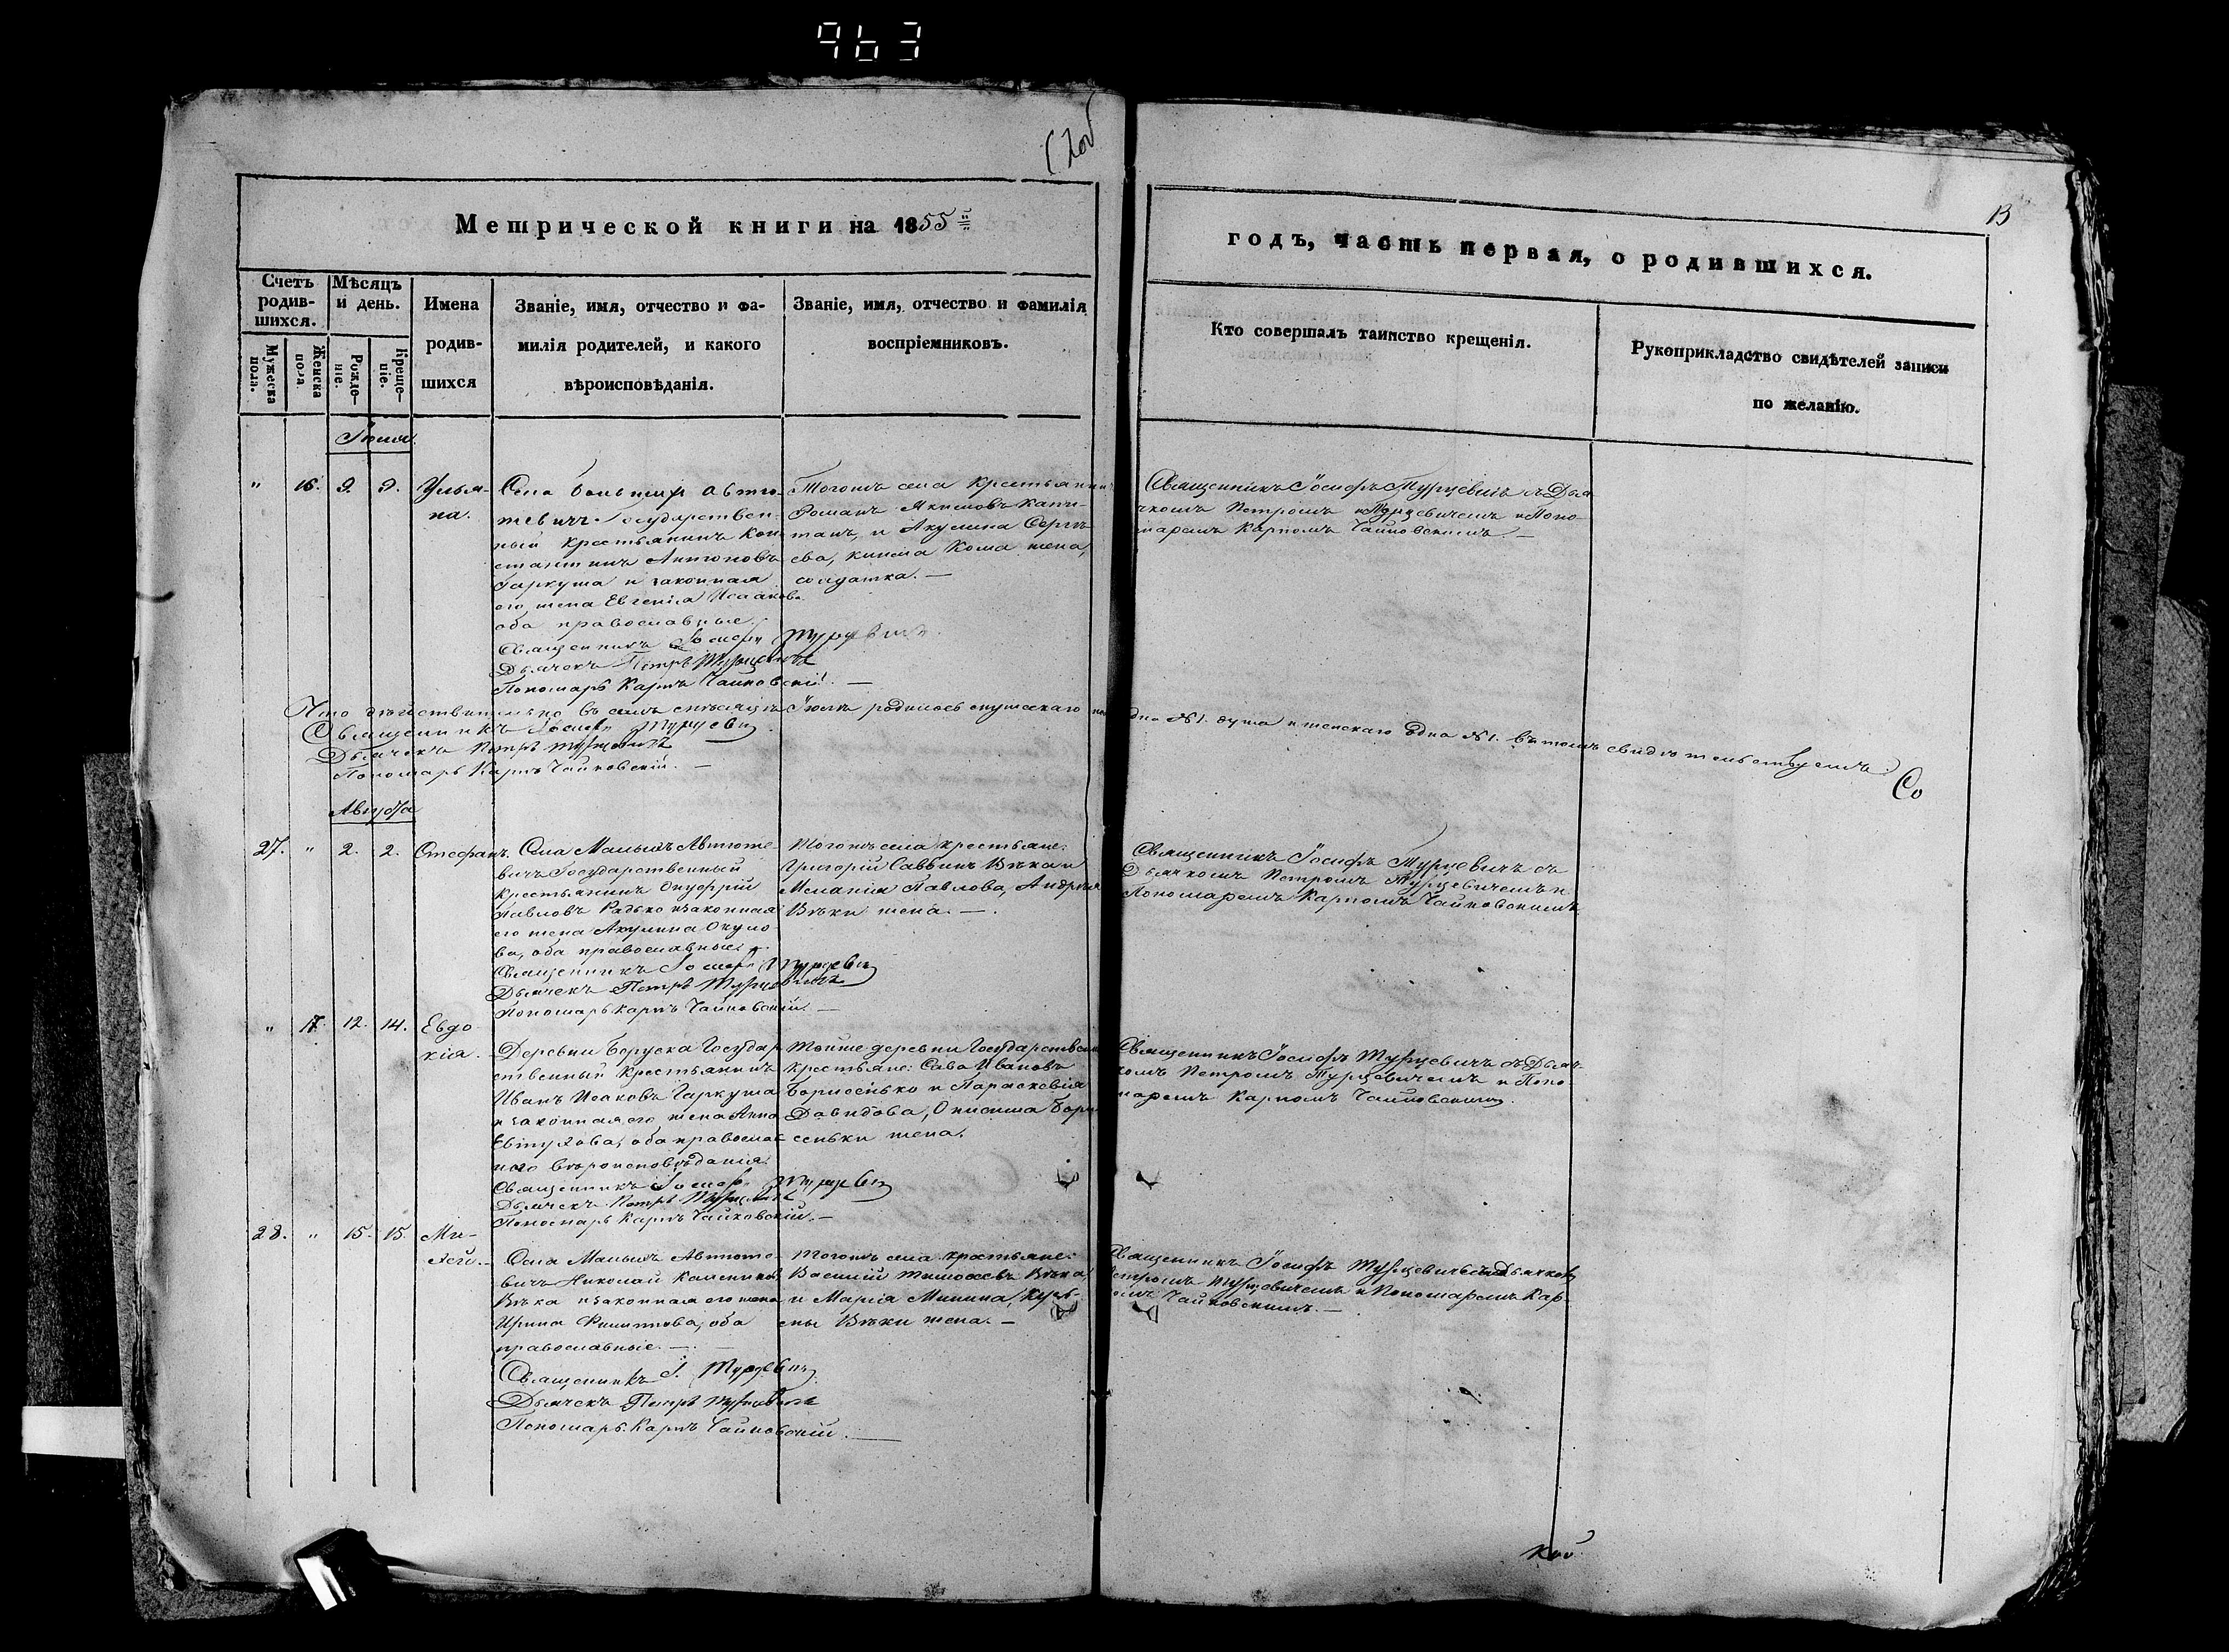 963
Метрической книги на 1855й
годъ, часть первая, о родившихся.
13
Счетъ родив-шихся.
Мѣсяцъ и день.
Имена родив-шихся
Званіе, имя, отчество и фа-
милія родителей, и какого
вѣроисповѣданія.
Званіе, имя, отчество и фамилія
воспріемниковъ.
Кто совершалъ таинство крещенія.
Рукоприкладство свидѣтелей записи
по желанію.
Мужеска пола.
Женска пола.
Рожде-ніе.
Креще-ніе.
Іюля.
" 16. 9. 9. Улья-
на.
Села Авто-
тевичъ Государствен-
ный крестьянинъ Кон
стантинъ Антоновъ
Гаркуша и законная
его жена Евгенія Исаакова
оба православные.
Священникъ Іосифъ Турцевичъ.
Дьячекъ Петръ Турцевичъ
Пономарь Карпъ Чайковскій. —
Тогожъ села крестьянинъ
Романъ Якимовъ Капи-
танъ, и Акулина Сергѣ
ева, жена,
солдатка. —
Священникъ Іосифъ Турцевичъ съ Дья
чкомъ Петромъ Турцевичемъ и Поно-
маремъ Карпомъ Чайковскимъ. —
Что дѣйствительно въ семъ мѣсяцѣ Іюлѣ родилось мужескаго одна №1. душа и женскаго одна №1. въ томъ свидѣтельствуемъ:
Священникъ Іосифъ Турцевичъ
Дьячекъ Петръ Турцевичъ
Пономарь Карпъ Чайковскій. —
Со
Августа
27. " 2. 2. Стефанъ.
Села Малыхъ Автюте
вичъ Государственный
крестьянинъ Онуфрій
Павловъ Радько и законная
его жена Акулина Окуло
ва, оба православные.
Священникъ Іосифъ Турцевичъ
Дьячекъ Петръ Турцевичъ
Пономарь Карпъ Чайковскій. —
Тогожъ села крестьяне:
Григорій Саввинъ Вѣка и
Меланія Павлова, Андрея
Вѣки жена. —.
Священникъ Іосифъ Турцевичъ съ
Дьячкомъ Петромъ Турцевичемъ и
Пономаремъ Карпомъ Чайковскимъ.
" 17. 12. 14. Евдо-
кія.
Деревни Боруска Государ
ственный крестьянинъ
Иванъ Исаковъ Гаркуша
и законная его жена Анна
Евтухова, оба правосла
внаго вѣроисповѣданія.
Священникъ Іосифъ Турцевичъ
Дьячекъ Петръ Турцевичъ
Пономарь Карпъ Чайковскій. —
Тойже деревни Государственные
крестьяне: Сава Ивановъ
Борисенько и Параскевія
Давидова, Онисима Бори
сеньки жена.
Священникъ Іосифъ Турцевичъ съ Дьяч-
комъ Петромъ Турцевичемъ и Поно
маремъ Карпомъ Чайковскимъ.
28. " 15. 15. Ми-
хей.
Села Малыхъ Автюте-
вичъ Николай
Вѣка и законная его жена
Ирина Филипова, оба
православные. —.
Священникъ І. Турцевичъ
Дьячекъ Петръ Турцевичъ
Пономарь Карпъ Чайковскій. —
Тогожъ села крестьяне:
Василій Тимоѳеевъ Вѣка,
и Марія Минина, Кузь-
мы Вѣки жена. —
Священникъ Іосифъ Турцевичъ съ Дьячкомъ
Петромъ Турцевичемъ и Пономаремъ Кар-
помъ Чайковскимъ. —